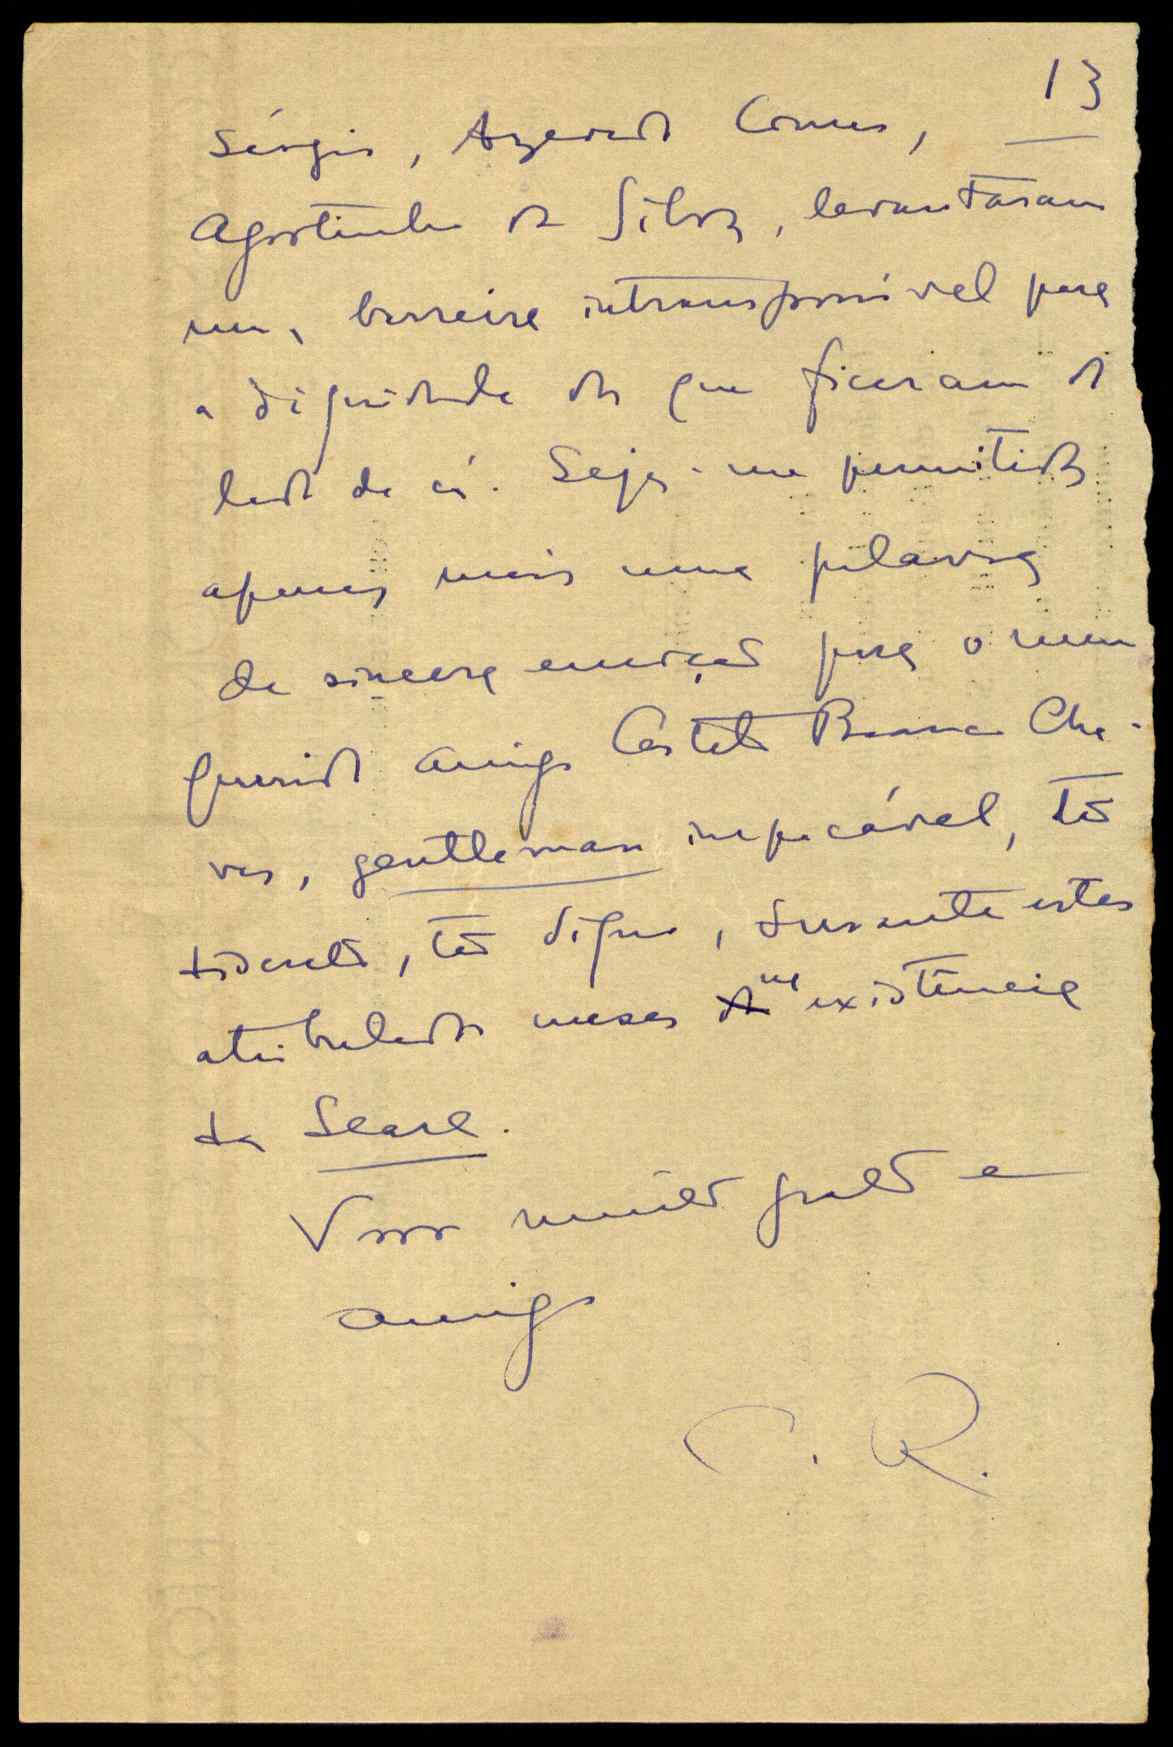 13
Sérgio, Azevedo Gomes,
Agostinho da Silva, levantaram
uma barreira intransponível para
a dignidade dos que ficaram do
lado de cá. Seja-me permitida
apenas mais uma palavra
de sincera emoção para o meu
querido amigo Castelo Branco Cha-
ves, gentleman impecável, tão
discreto, tão digno, durante estes
atribulados meses na existência
da Seara.
Vosso muito grato e
amigo
R.